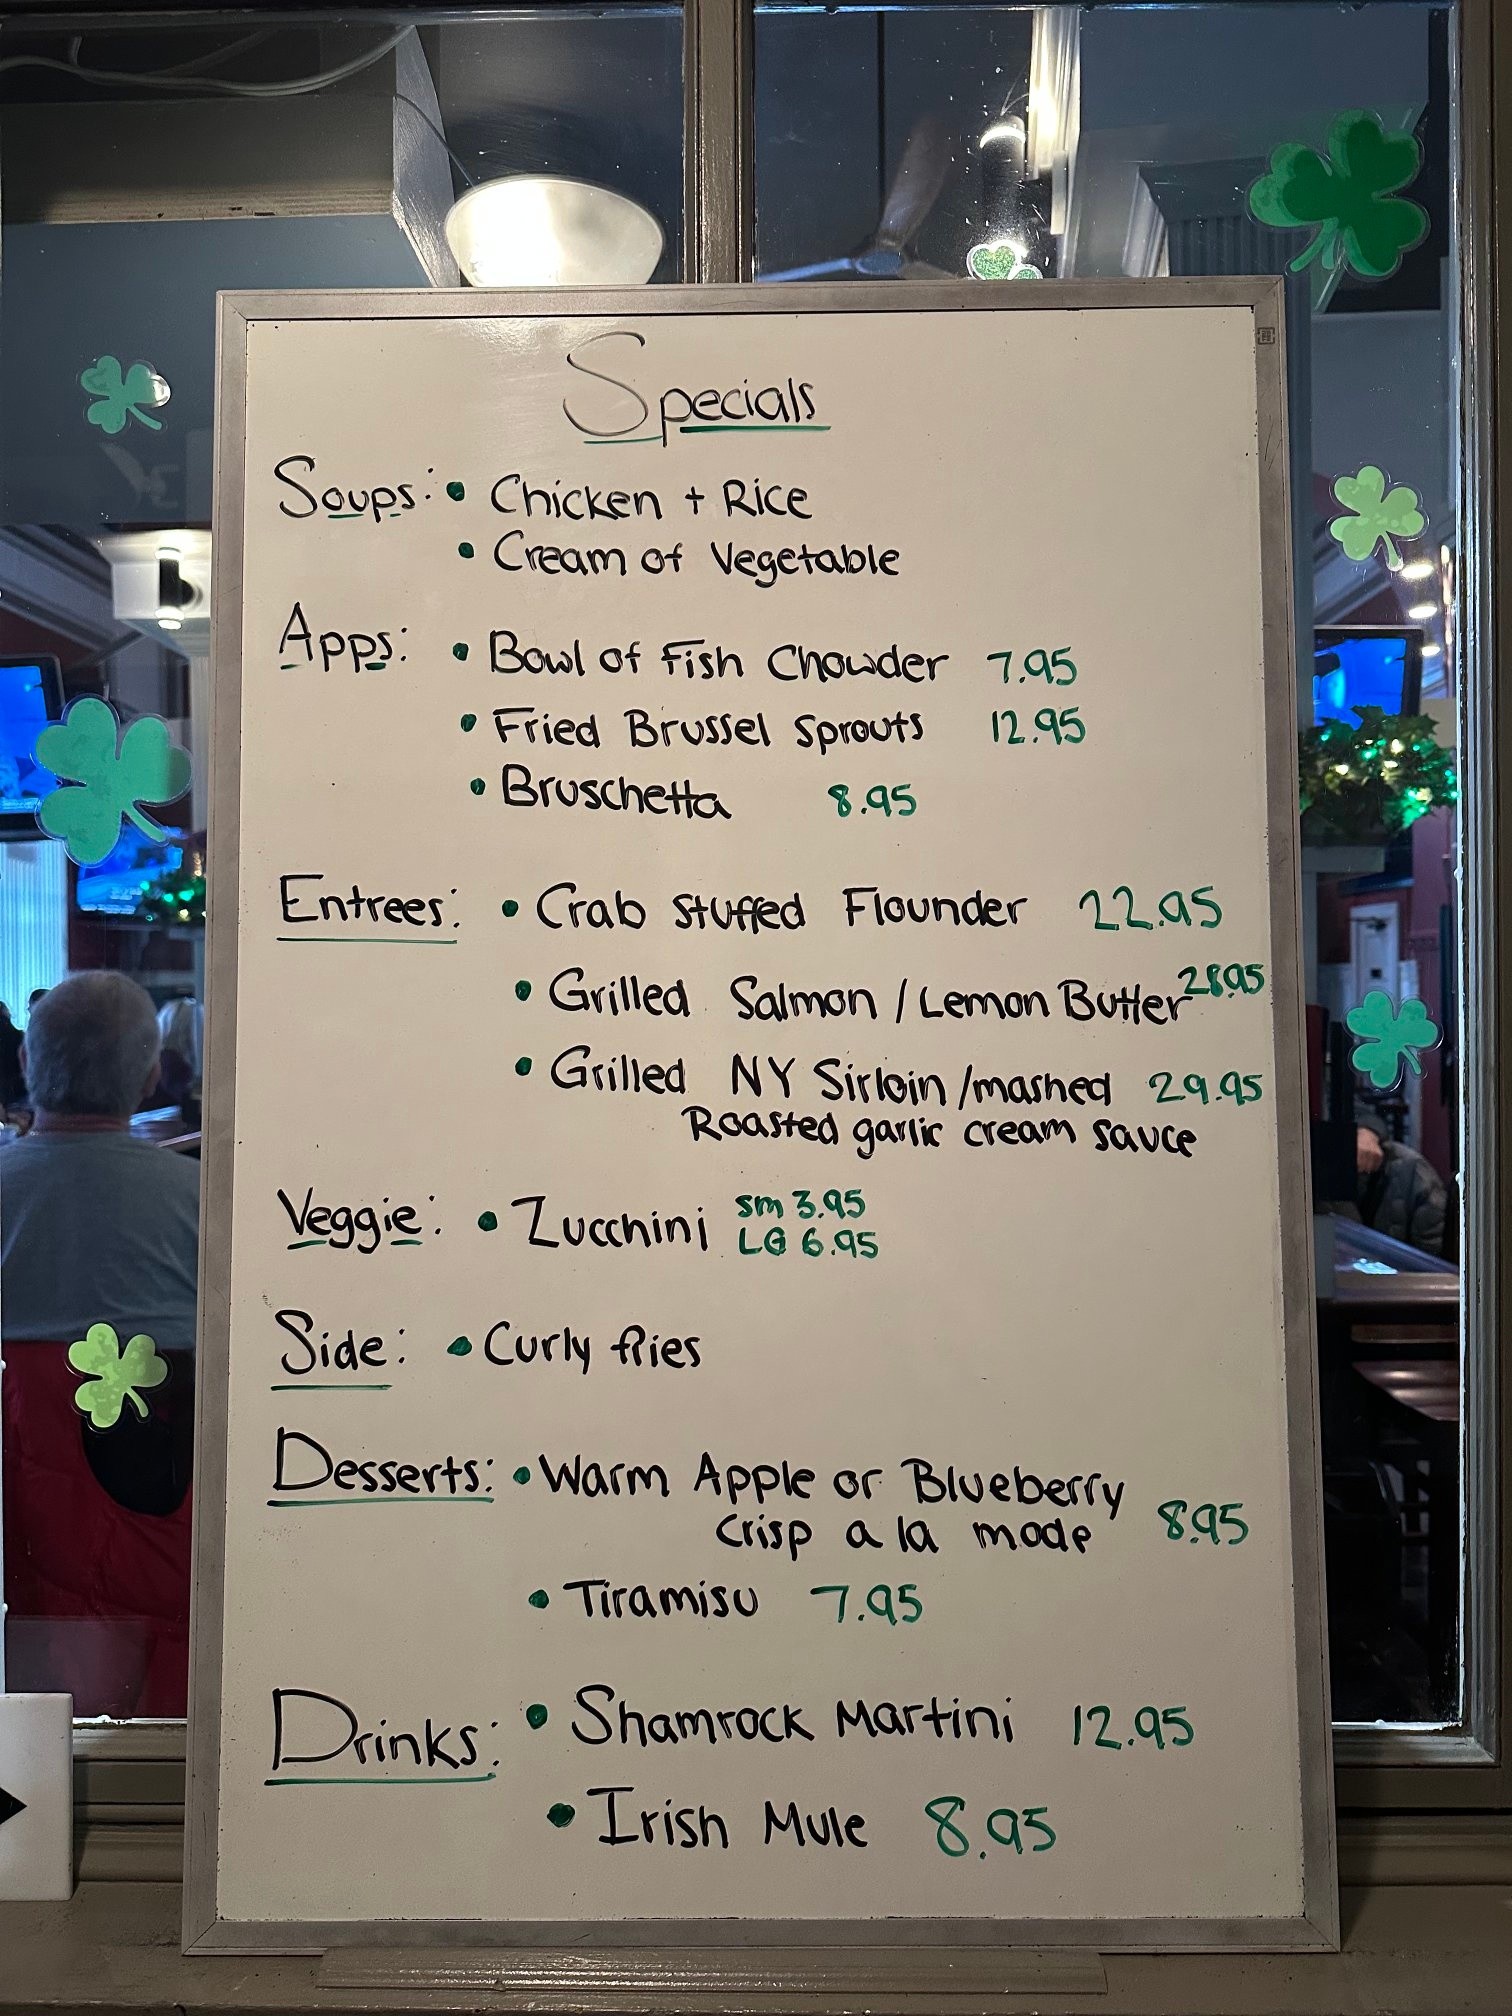 Specials
Soups: • Chicken + Rice
• Cream of Vegetable
Apps: • Bowl of Fish Chowder 7.95
• Fried Brussel Sprouts 12.95
• Bruschetta 8.95
Entrees: • Crab Stuffed Flounder 22.95
• Grilled Salmon / Lemon Butter 28.95
• Grilled NY Sirloin / mashed 29.95
Roasted garlic cream sauce
Veggie: • Zucchini sm 3.95
LG 6.95
Side: • Curly fries
Desserts: • Warm Apple or Blueberry
Crisp a la mode 8.95
• Tiramisu 7.95
Drinks: • Shamrock Martini 12.95
• Irish Mule 8.95